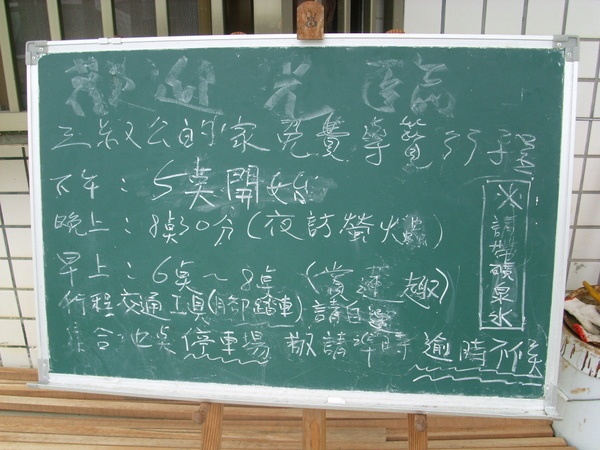 歡迎光臨
三叔公的家免費導覽行程
下午：5点開始
晚上：8點30分（夜訪螢火蟲）
早上：6点～8点（賞蓮趣）
行程交通工具(腳踏車)請自備
集合地点停車場 敬請準時 逾時不候
※請帶礦泉水